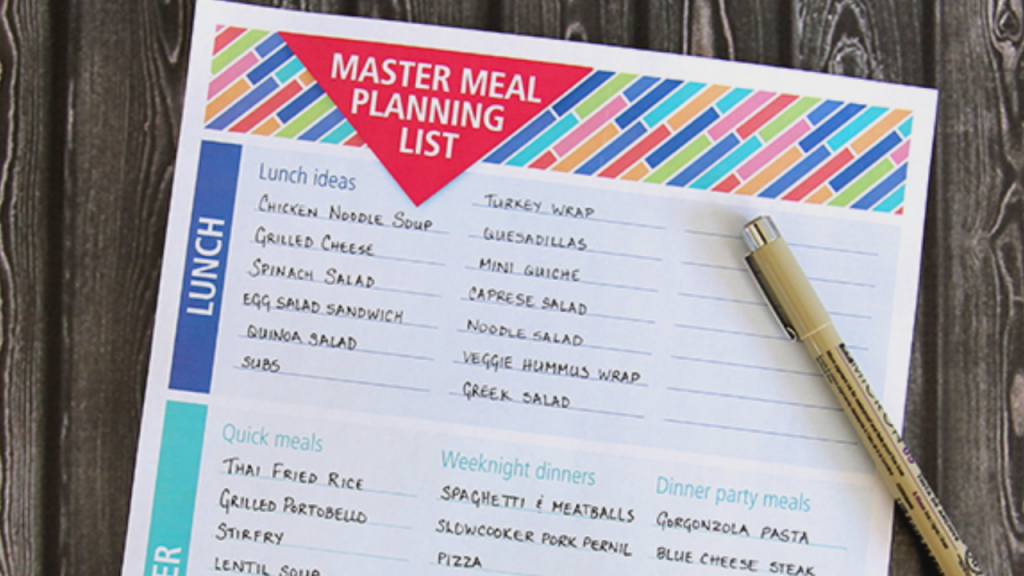 MASTER MEAL
PLANNING
LIST
LUNCH
Lunch ideas
CHICKEN NOODLE SOUP
GRILLED CHEESE
SPINACH SALAD
EGG SALAD SANDWICH
QUINOA SALAD
SUBS
TURKEY WRAP
QUESADILLAS
MINI QUICHE
CAPRESE SALAD
NOODLE SALAD
VEGGIE HUMMUS WRAP
GREEK SALAD
ER
Quick meals
THAI FRIED RICE
GRILLED PORTOBELLO
STIRFRY
LENTIL SOUP
Weeknight dinners
SPAGHETTI & MEATBALLS
SLOWCOOKER PORK PERNIL
PIZZA
Dinner party meals
GORGONZOLA PASTA
BLUE CHEESE STEAK